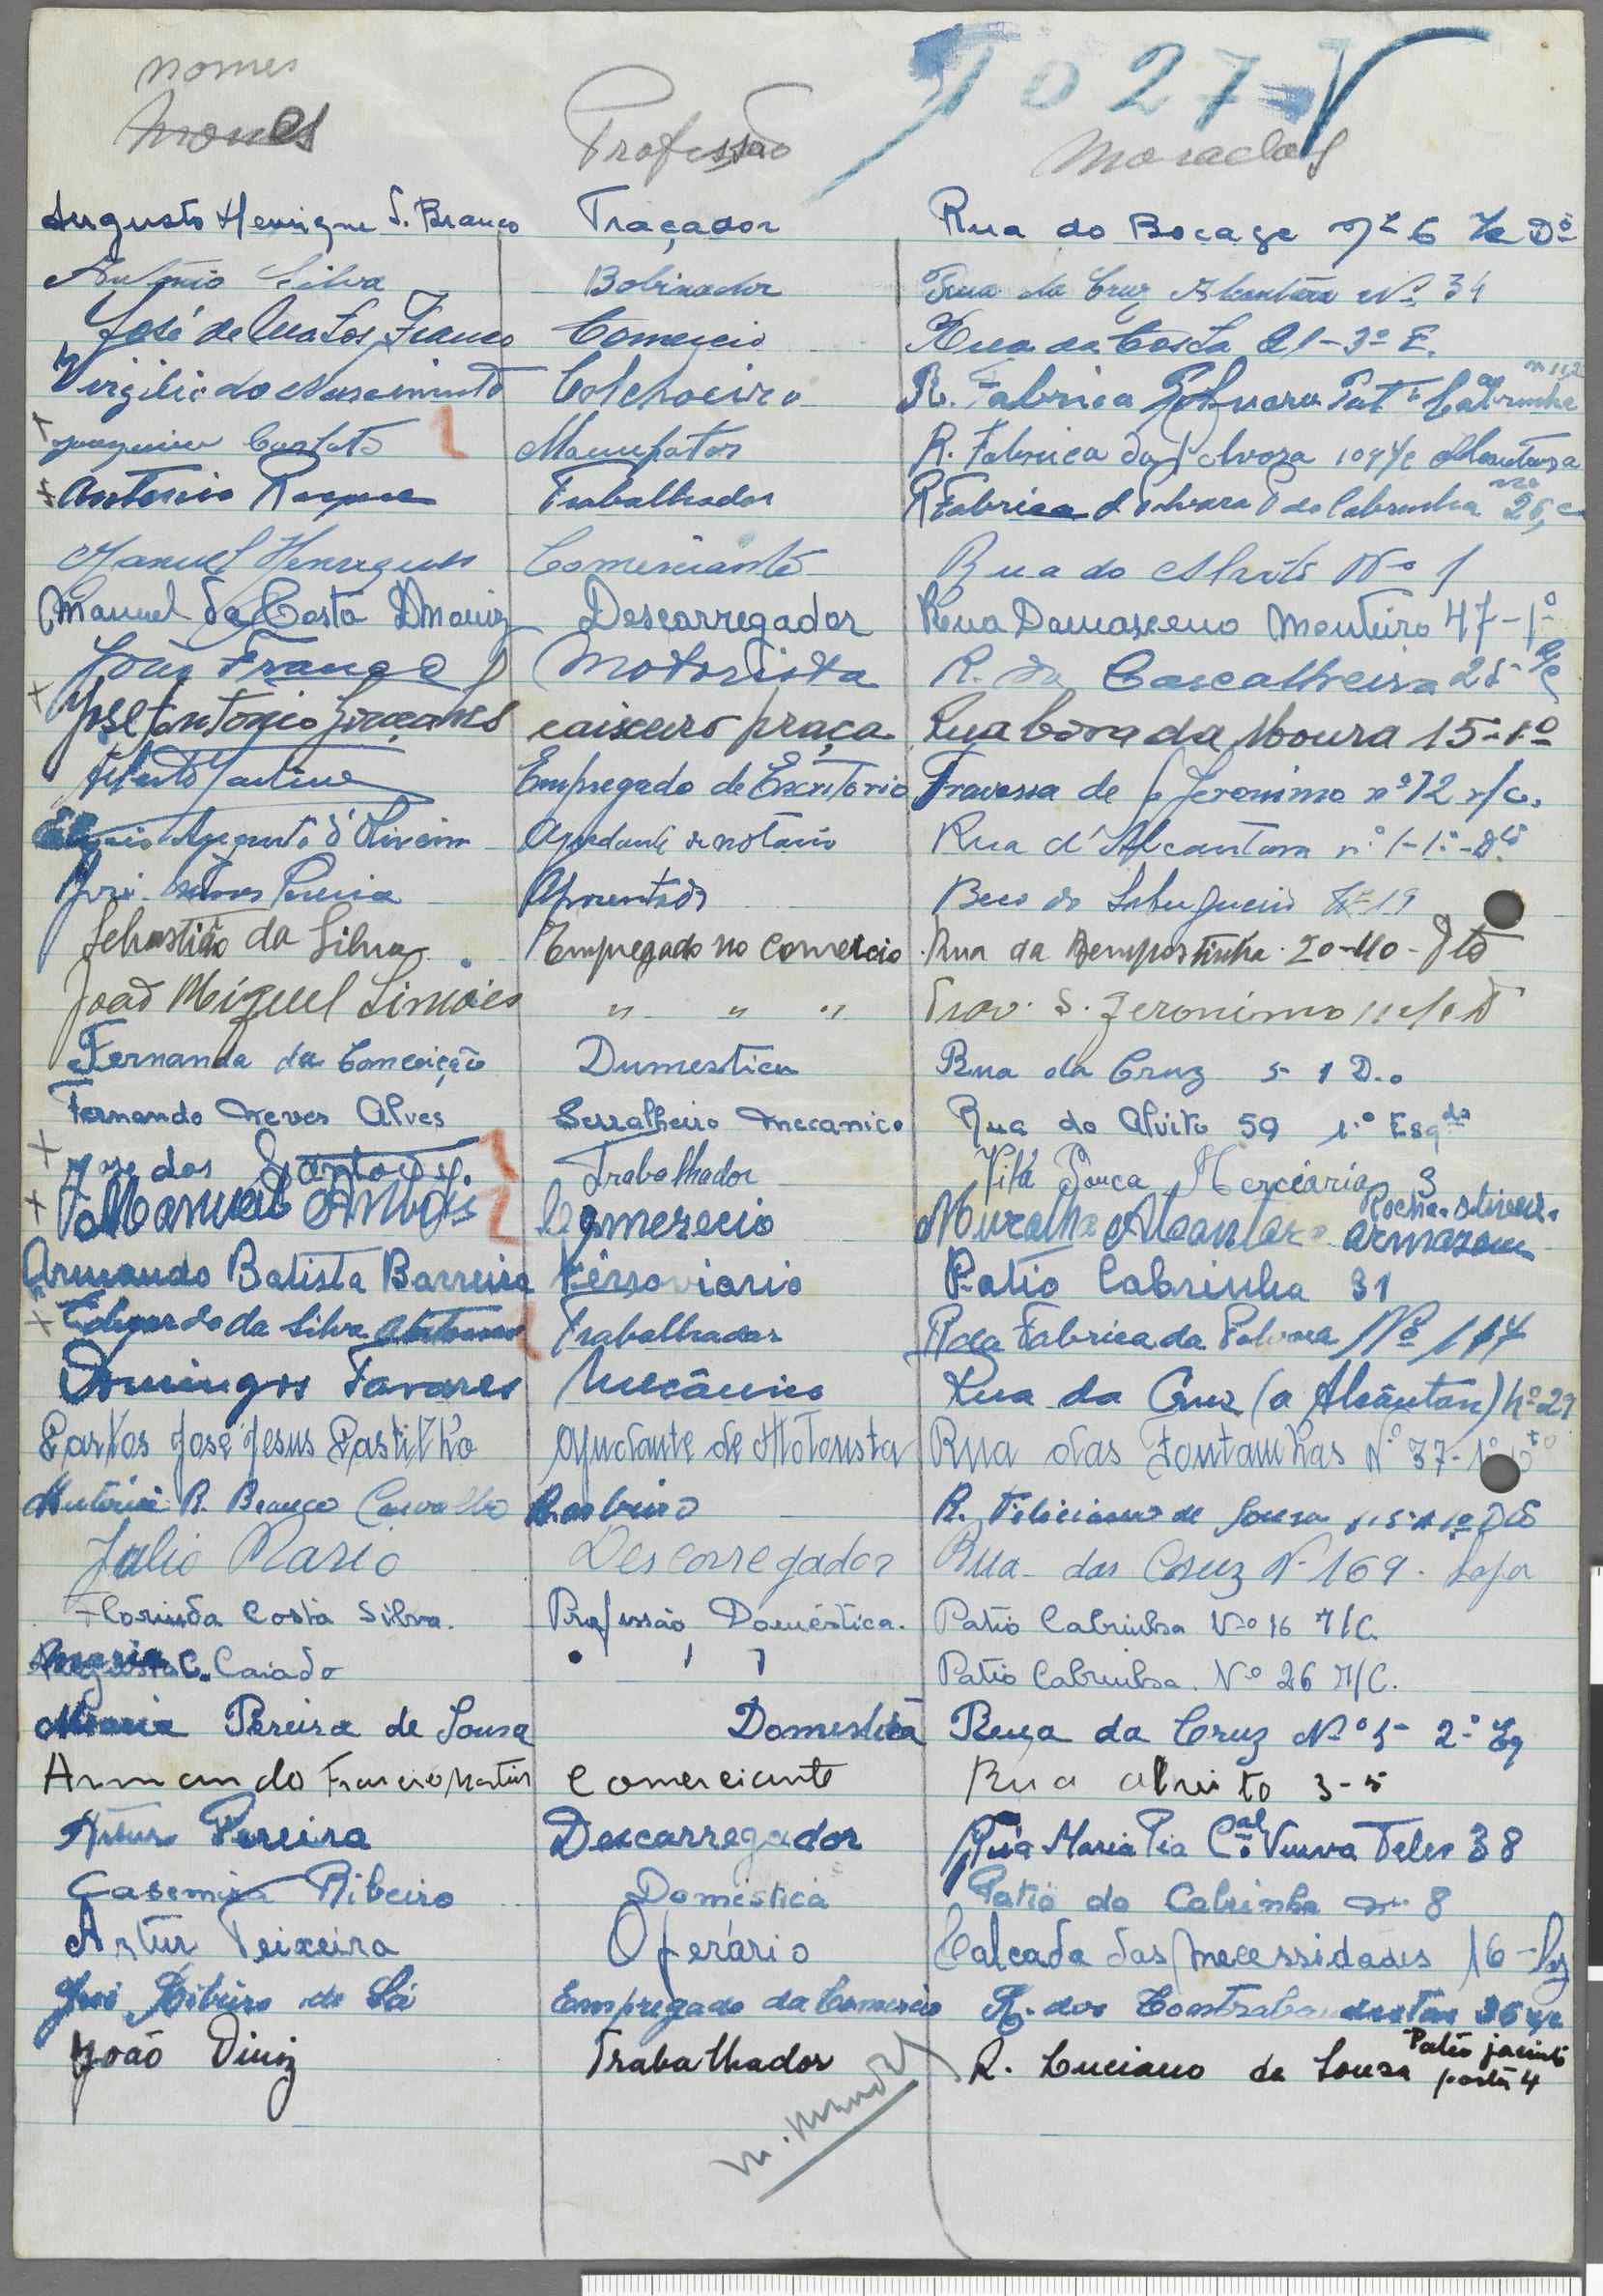 nomes
T027-V
Profissão Moradas
Augusto Henrique S. Branco Traçador Rua do Bocage nº 6 Dº
António Silva Bobinador Rua da Cruz Alcantara Nº 34
José de Matos Franco Comercio Rua da Costa 21-3º E.
Virgilio do Nascimento Colchoeiro R. Fabrica Polvora Pat Cabrinha
Joaquim R. Fabrica da Polvora 109 r/c Alcantara
Antonio Roque Trabalhador R Fabrica d Polvora P do Cabrinha 26
Manuel Henriques Comerciante Rua do Nº 1
Manuel da Costa Descarregador Rua Damasceno Monteiro 47-1º
João Franco Motorista R. da Cascalheira 25
José Antonio caixeiro praça Rua Cova da Moura 15-1º
Martins Empregado de Escritorio Travessa de S Jeronimo nº 12 r/c.
Augusto d'Oliveira Ajudante de notario Rua d'Alcantara nº 1-1º-Dto
José Pereira Aposentado Beco do Sabugueiro Nº 19
Sebastião da Silva Empregado no Comercio Rua da Bempostinha 20-
João Miguel Simões " " " Trav. S. Jeronimo 11
Fernanda da Conceição Dumestica Rua da Cruz 5 1 D.o
Fernando Neves Alves Serralheiro mecanico Rua do Alvito 59 1º Esqdo
Jose dos Santos Trabalhador Vila Pouca Merciaria 3
Manuel Comerecio Muralha Alcantara Armazem
Armando Batista Barreira Ferroviario Patio Cabrinha 31
Eduardo da Silva Trabalhador R da Fabrica da Polvora Nº 117
Domingos Tavares Mecânico Rua da Cruz (a Alcântara) nº 29
José Jesus Ajudante de Motorista Rua das Fontainhas Nº 37-1º
R. Branco Carvalho Barbeiro R. Feliciano de Sousa
Julio Mario Descarregador Rua das Cruz Nº 169 Loja
Florinda Costa Silva. Profissão Doméstica. Patio Cabrinha Nº 16 r/C.
Maria C. Caiado " " Patio Cabrinha. Nº 26 r/C.
Maria Pereira de Sousa Domestica Rua da Cruz Nº 5- 2º Eq
Armando Francisco Martins Comerciante Rua alvito 3-5
Artur Pereira Descarregador Rua Maria Pia Cal Viuva Teles 38
Casemira Ribeiro Doméstica Patio do Cabrinha nº 8
Artur Teixeira Operário Calcada das Necessidades 16
José Ribeiro de Sá Empregado do Comercio R. dos Contrabandistas
João Diniz Trabalhador R. Luciano de Sousa Patio jacinto porta 4